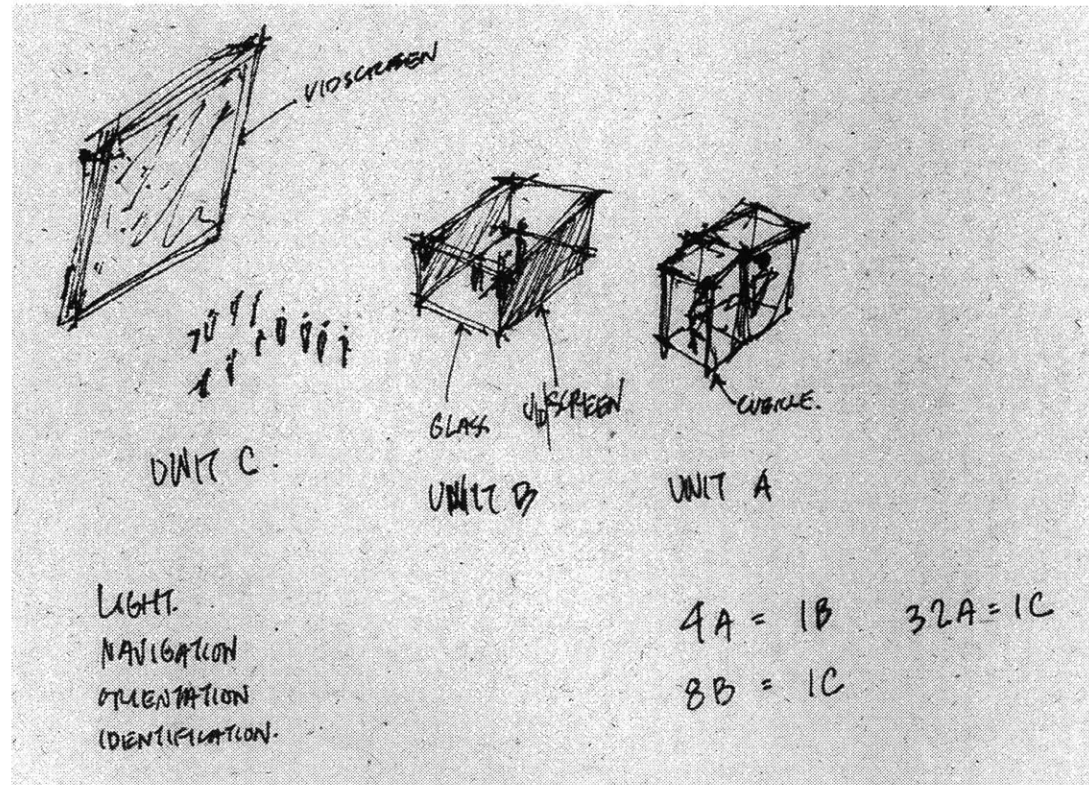 VIDSCREEN
GLASS
VIDSCREEN
CUBICLE.
UNIT C.
UNIT B
UNIT A
LIGHT.
NAVIGATION
ORIENTATION
IDENTIFICATION.
4A = 1B 32A = 1C
8B = 1C